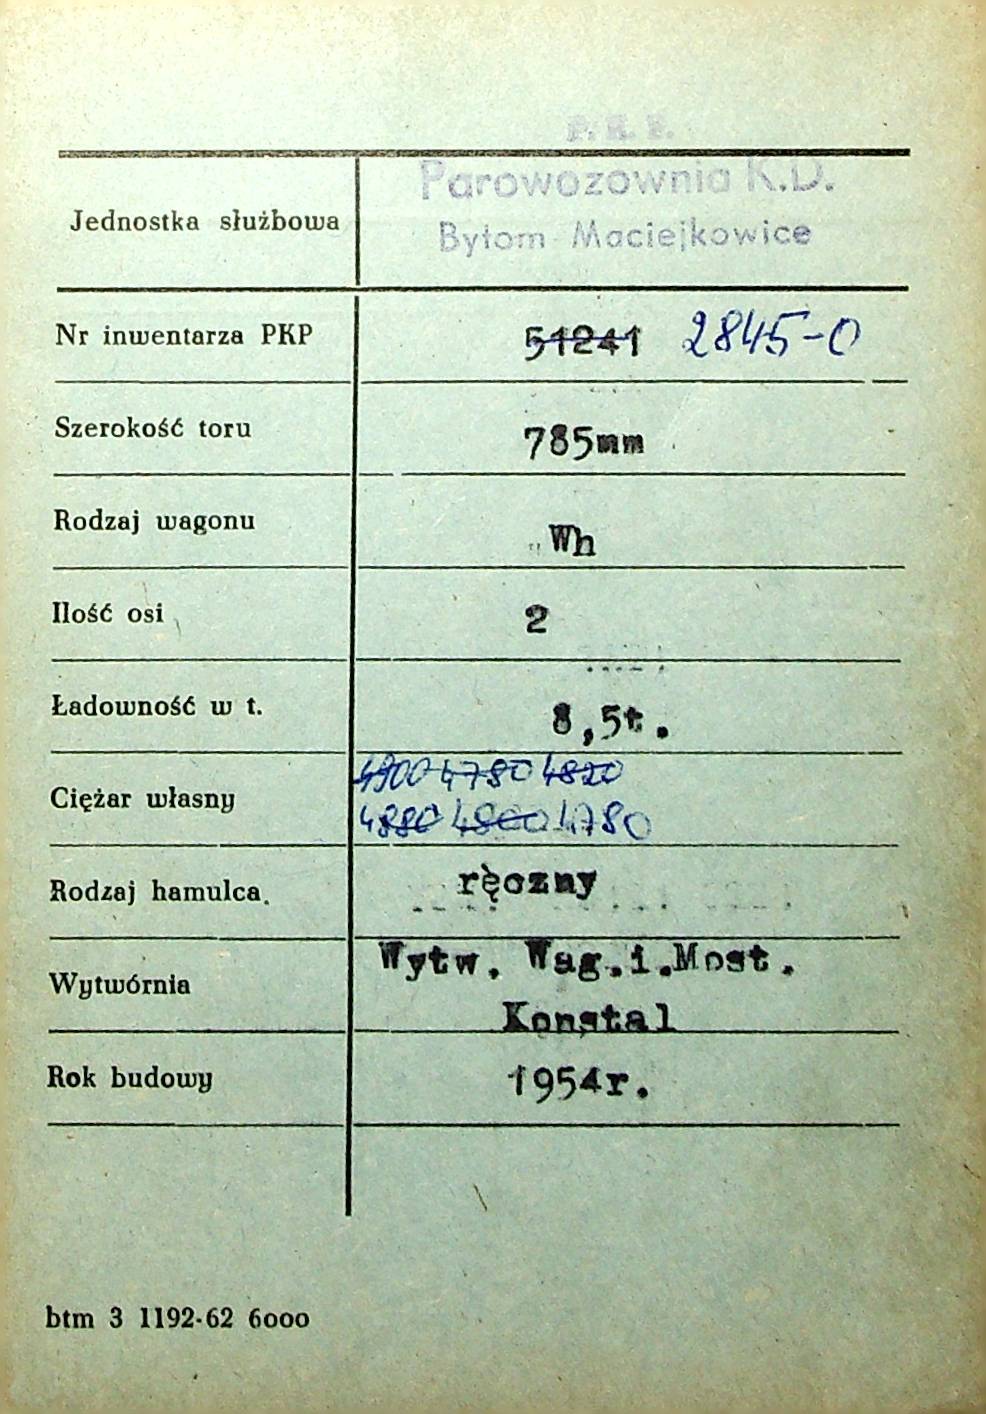 P. K. P.
Parowozownia K.D.
Jednostka służbowa
Bytom Maciejkowice
Nr inwentarza PKP 51241 2845-0
Szerokość toru 785mm
Rodzaj wagonu Wh
Ilość osi 2
Ładowność w t. 8,5t.
4900 4780 4820
Ciężar własny
4880 4800 4780
Rodzaj hamulca ręczny
Wytw. Wag.i.Most.
Wytwórnia
Konstal
Rok budowy 1954r.
btm 3 1192-62 6000